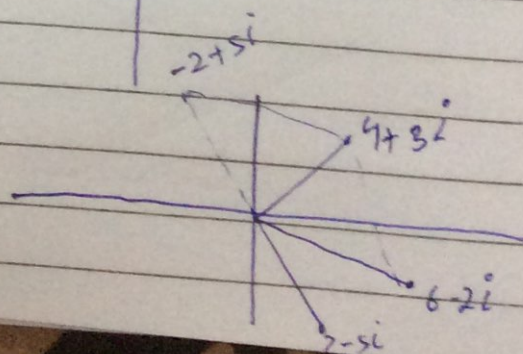 -2+5i
4+3i
6-2i
2-5i